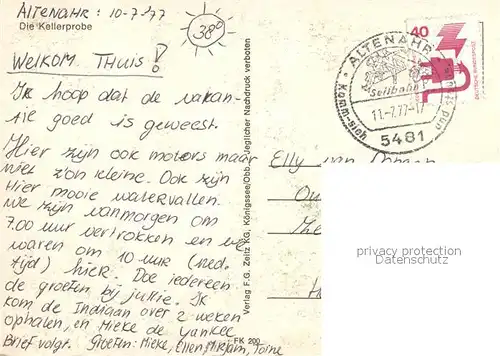 ALTENAHR: 10-7-'77
Die Kellerprobe
38°
WELKOM THUIS!
Ik hoop dat de vakan-
tie goed is geweest.
Hier zijn ook motors maar
niet zo'n kleine. Ook zijn
Hier mooie watervallen.
We zijn vanmorgen om
7.00 uur vertrokken en we
waren om 10 uur (ned.
tijd) hier. Doe iedereen
de groeten bij jullie. Ik
kom de Indiaan over 2 weken
ophalen, en Mieke de Yankee
Brief volgt. Groeten: Mieke, Ellen, Mirjam, Toine
Verlag F.G. Zeitz KG, Königssee/Obb. Jeglicher Nachdruck verboten
FK 200
ALTENAHR
Seilbahn
11.-7.77-17
5481
Komm-sieh und
40
DEUTSCHE BUNDESPOST
Elly van
privacy protection
Datenschutz